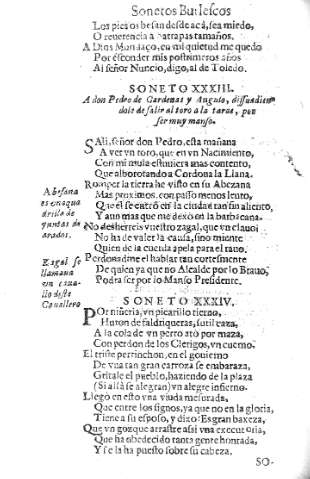 Sonetos Burlescos
Los pies os besan desde acá, sea miedo,
O reverencia a satrapas tamaños.
A Dios Mondaço, en mi quietud me quedo
Por esconder mis postrimeros años
Al señor Nuncio, digo, al de Toledo.
SONETO XXXIII.
A don Pedro de Cardenas y Angulo, dissuadien
dole de salir al toro a la tarde, por
ser muy manso.
SAli, señor don Pedro, esta mañana
A ver vn toro, que en vn Nacimiento,
Con mi mula estuuiera mas contento,
Que alborotando a Cordoua la Llana.
Romper la tierra he visto en su Abezana
Mas proximos, con passo menos lento,
Que el se entró en la ciudad tan sin aliento,
Y aun mas que me dexó en la barbacana.
No desherreis vuestro zagal, que vn clauo
No ha de valer la causa, sino miente
Quien de la cuerda apela para el rauo.
Perdonadme el hablar tan cortesmente
De quien ya que no Alcalde por lo Brauo,
Podra ser por lo Manso Presidente.
Abesana
es en aqua
drilla de
yuntas de
arados.
Zagal se
llamaua
vn caua-
llo deste
Cauallero
SONETO XXXIV.
POr niñeria, vn picarillo tierno,
Huron de faldriqueras, sutil caza,
A la cola de vn perro ató por maza,
Con perdon de los Clerigos, vn cuerno.
El triste perrinchon, en el gouierno
De vna tan gran carroza se embaraza,
Gritale el pueblo, haziendo de la plaza
(Si allá se alegran) vn alegre infierno.
Llegó en esto vna viuda mesurada,
Que entre los signos, ya que no en la gloria,
Tiene a su esposo, y dixo: Es gran baxeza,
Que vn gozque arrastre assi vna executoria,
Que ha obedecido tanta gente honrada,
Y se la ha puesto sobre su cabeza.
SO-